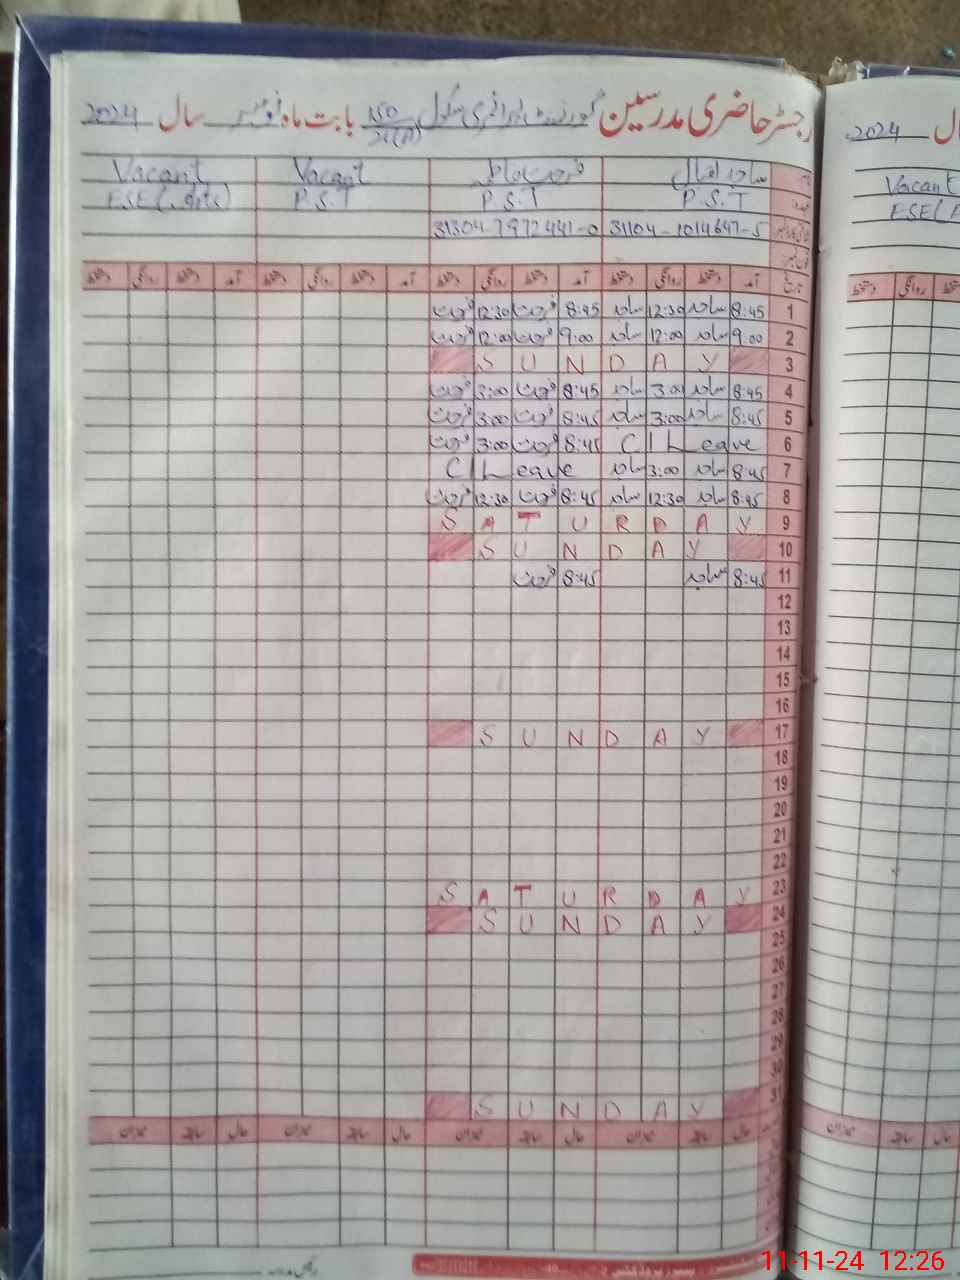 رجسٹر حاضری مدرسین گورنمنٹ پرائمری سکول 150 بابت ماہ نومبر سال 2024
ساجد اقبال Vacant Vacant
P.S.T P.S.T P.S.T ESE(Arts)
31104-1014647-5 31304-7972441-0
تاریخ آمد دستخط روانگی دستخط آمد دستخط روانگی دستخط آمد دستخط روانگی دستخط آمد دستخط روانگی دستخط
1 8:45 ساجد 12:30 ساجد 8:45 فرحت 12:30 فرحت
2 9:00 ساجد 12:00 ساجد 9:00 فرحت 12:00 فرحت
SUNDAY 3
4 8:45 ساجد 3:00 ساجد 8:45 فرحت 3:00 فرحت
5 8:45 ساجد 3:00 ساجد 8:45 فرحت 3:00 فرحت
6 C/Leave 8:45 فرحت 3:00 فرحت
7 8:45 ساجد 3:00 ساجد C/Leave
8 8:45 ساجد 12:30 ساجد 8:45 فرحت 12:30 فرحت
SATURDAY 9
SUNDAY 10
11 8:45 ساجد 8:45 فرحت
12
13
14
15
16
SUNDAY 17
18
19
20
21
22
SATURDAY 23
SUNDAY 24
25
26
27
28
29
30
SUNDAY 31
حال سابقہ میزان حال سابقہ میزان حال سابقہ میزان حال سابقہ میزان
2024
Vacant
11-11-24 12:26